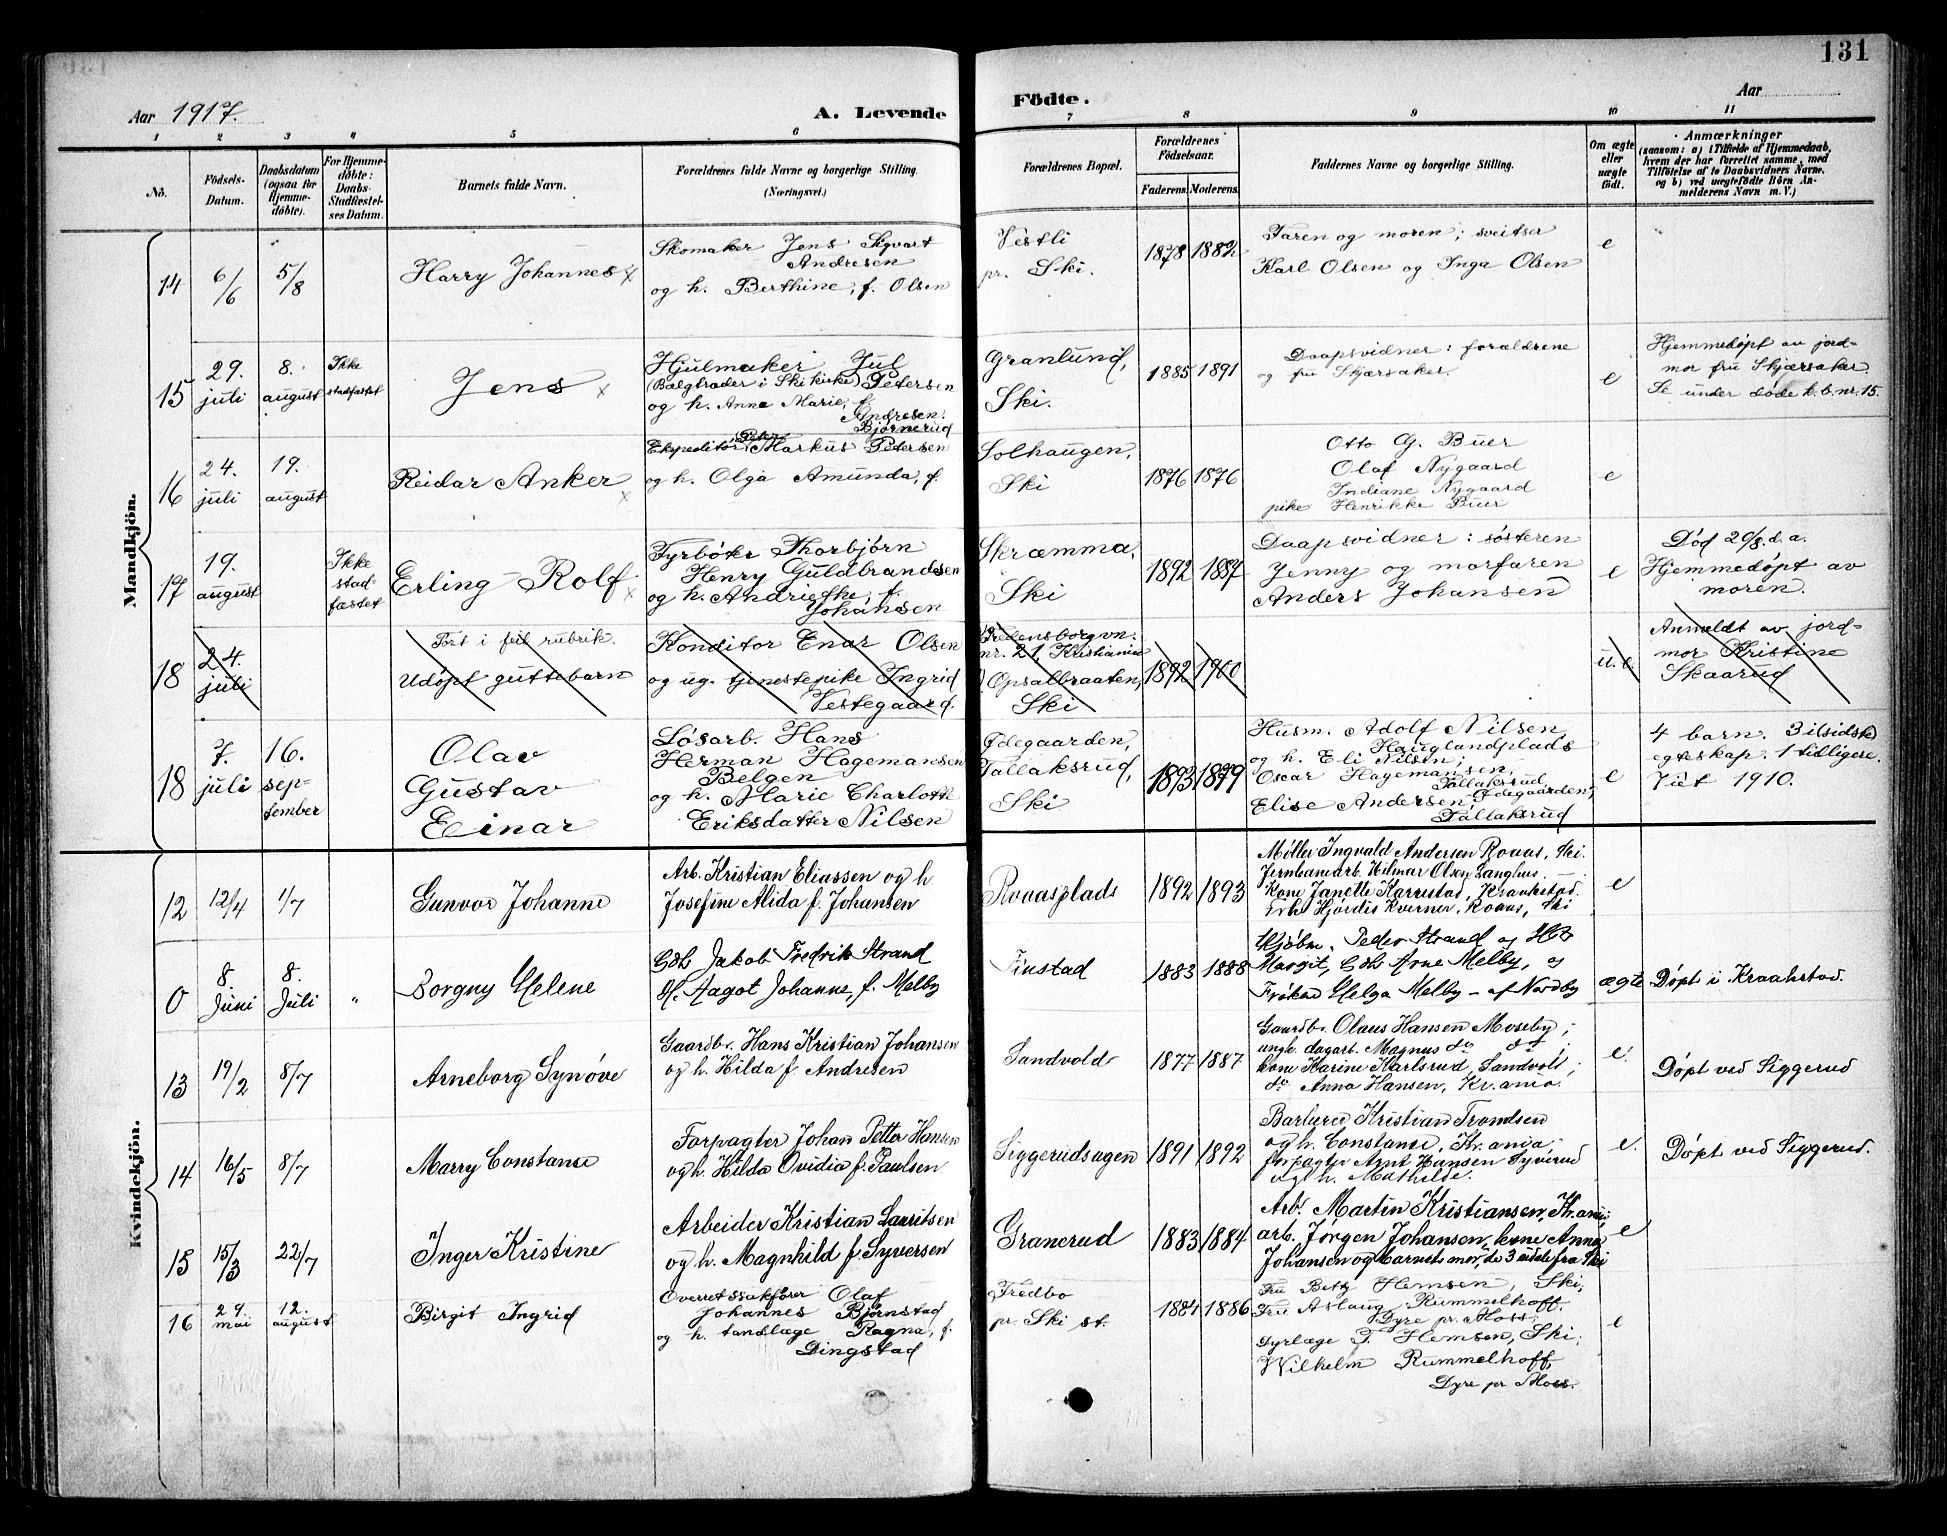 131
Aar 1917.
A. Levende
Födte.
Aar
1 2 3 4 5 6 7 8 9 10 11
No.
Födsels-
Datum.
Daabsdatum
(ogsaa for
Hjemme-
döbte).
For Hjemme-
döbte:
Daabs-
Stadfæstel-
ses Datum.
Barnets fulde Navn.
Forældrenes fulde Navne og borgerlige Stilling.
(Næringsvei.)
Forældrenes Bopæl.
Forældrenes
Födselsaar.
Faderens. Moderens.
Faddernes Navne og borgerlig Stilling.
Om ægte
eller
uægte
födt.
Anmærkninger
(saasom: a) i Tilfælde af Hjemmedaab,
hvem der har forrettet samme, med
Tilföielse af to Daabsvidners Navne,
og b) ved uægtefödte Börn An-
melderens Navn m. V.)
Mandkjön.
14
6/6
5/8
Harry Johannes x
Skomaker Jens Sigvart
Andresen
og h. Berthine, f. Olsen
Vestli
pr. Ski.
1878 1882
Faren og moren; sveitser
Karl Olsen og Inga Olsen
e
15
29.
juli
8.
august
Ikke
stadfæstet
Jens x
Hjulmaker Jul
(Bælgtræder i Ski kirke) Pedersen
og h. Anne Marie, f.
Andresen.
Granlund,
Ski.
1885 1891
Daapsvidner: forældrene
og fru Skjærsaker.
e
Hjemmedøpt av jord-
mor fru Skjærsaker.
Se under døde k.b. nr. 15.
16
24.
juli
19.
august
Reidar Anker x
Bjørnerud
Ekspeditør (Peter) Markus Petersen
og h. Olga Amunda, f.
Solhaugen,
Ski
1876 1876
Otto G. Buer
Olaf Nygaard
Indiane Nygaard
pike Henrikke Buer
e
17
19.
august
Ikke
stad-
fæstet
Erling Rolf x
Fyrbøter Thorbjørn
Henry Guldbrandsen
og h. Andrikke, f.
Johansen
Skræmma,
Ski
1892 1887
Daapsvidner: søsteren
Jenny og morfaren
Anders Johansen
e
Død 20/8 d.a.
Hjemmedøpt av
moren.
18
24.
juli
Ført i feil rubrik.
Udøpt guttebarn
Konditor Einar Olsen
og ug. tjenestepike Ingrid
Vestegaard.
Fredensborgvn.
nr. 21, Kristiania
Opsalbraaten,
Ski
1892 1900
u.e.
Anmeldt av jord-
mor Kristine
Skaarud
18
7.
juli
16.
sep-
tember
Olav
Gustav
Einar
Løsarb. Hans
Herman Hagemansen
Belgen
og h. Marie Charlotte
Eriksdatter Nilsen
Ødegaarden,
Tallaksrud,
Ski
1893 1879
Husm. Adolf Nilsen,
Hauglandplads
og h. Eli Nilsen;
Oscar Hagemansen,
Tallaksrud
Ødegaarden,
Elise Andersen,
Tallaksrud
e
4 barn. 3 i sidste
egteskap. 1 tidligere.
Viet 1910.
Kvindekjön.
12
12/4
1/7
Gunvor Johanne
Arb. Kristian Eliassen og h
Josefine Alida f. Johansen
Roaasplads
1892 1893
Møller Ingvald Andersen Roaas, Ski.
Jernbanarb. Hilmar Olsen Langhus.
Kone Janette Karrestad, Kraakstad.
Hjørdis Kverner, Roaas, Ski
e
0
8.
Juni
8.
Juli
"
Borgny Helene
Gdb. Jakob Fredrik Strand
H. Aagot Johanne, f. Melby
Finstad
1883 1888
Kjøbm. Peder Strand og H
Margit, Gdb Arne Melby, og
Frøken Helga Melby – af Nordby
ægte
Døpt i Kraakstad.
13
19/2
8/7
Arneborg Synøve
Gaardb. Hans Kristian Johansen
og h. Hilda f. Andresen
Sandvold
1877 1887
Gaardbr. Olaus Hansen Moseby;
ungk. dagarb. Magnus do do;
kone Karine Karlsrud, Sandvold;
do Anna Hansen, Kr.ania.
e.
Døpt ved Siggerud
14
16/5
8/7
Marry Constanse
Forpagter Johan Petter Hansen
og h. Hilda Ovidia f. Paulsen
Siggerudsagen
1891 1892
Barberer Kristian Trondsen
og h. Constanse, Kr.ania;
forpagter Arnt Hansen Syverud
og h. Mathilde.
e.
Døpt ved Siggerud.
15
15/3
22/7
Inger Kristine
Arbeider Kristian Lauritsen
og h. Magnhild f. Syversen
Granerud
1883 1884
Arb. Martin Kristiansen, Kr.ania;
arb. Jørgen Johansen, kone Anna
Johansen og barnets mor, de 3 sidste fra Ski
e
16
29.
mai
12.
august
Birgit Ingrid
Overretssakfører Olaf
Johannes Bjørnstad
og h. tandlæge Ragna, f.
Dingstad
Fredbo
pr. Ski st.
1884 1886
Fru Betzy Hemsen, Ski;
Fru Aslaug Rummelhoff,
Dyre pr. Moss;
Dyrlæge T. Hemsen, Ski;
Wilhelm Rummelhoff,
Dyre pr Moss.
e